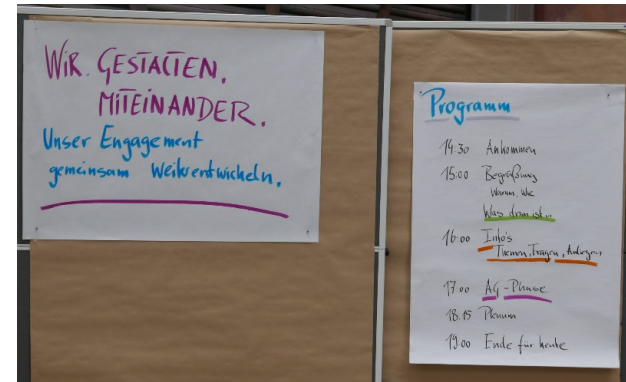 WIR. GESTALTEN.
MITEINANDER.
Unser Engagement
gemeinsam Weiterentwickeln.
Programm
14:30 Ankommen
15:00 Begrüßung
Warum, Wie
Was dran ist..
16:00 Info's
Themen, Fragen,
17.00 AG-Phase
18.15 Plenum
19.00 Ende für heute